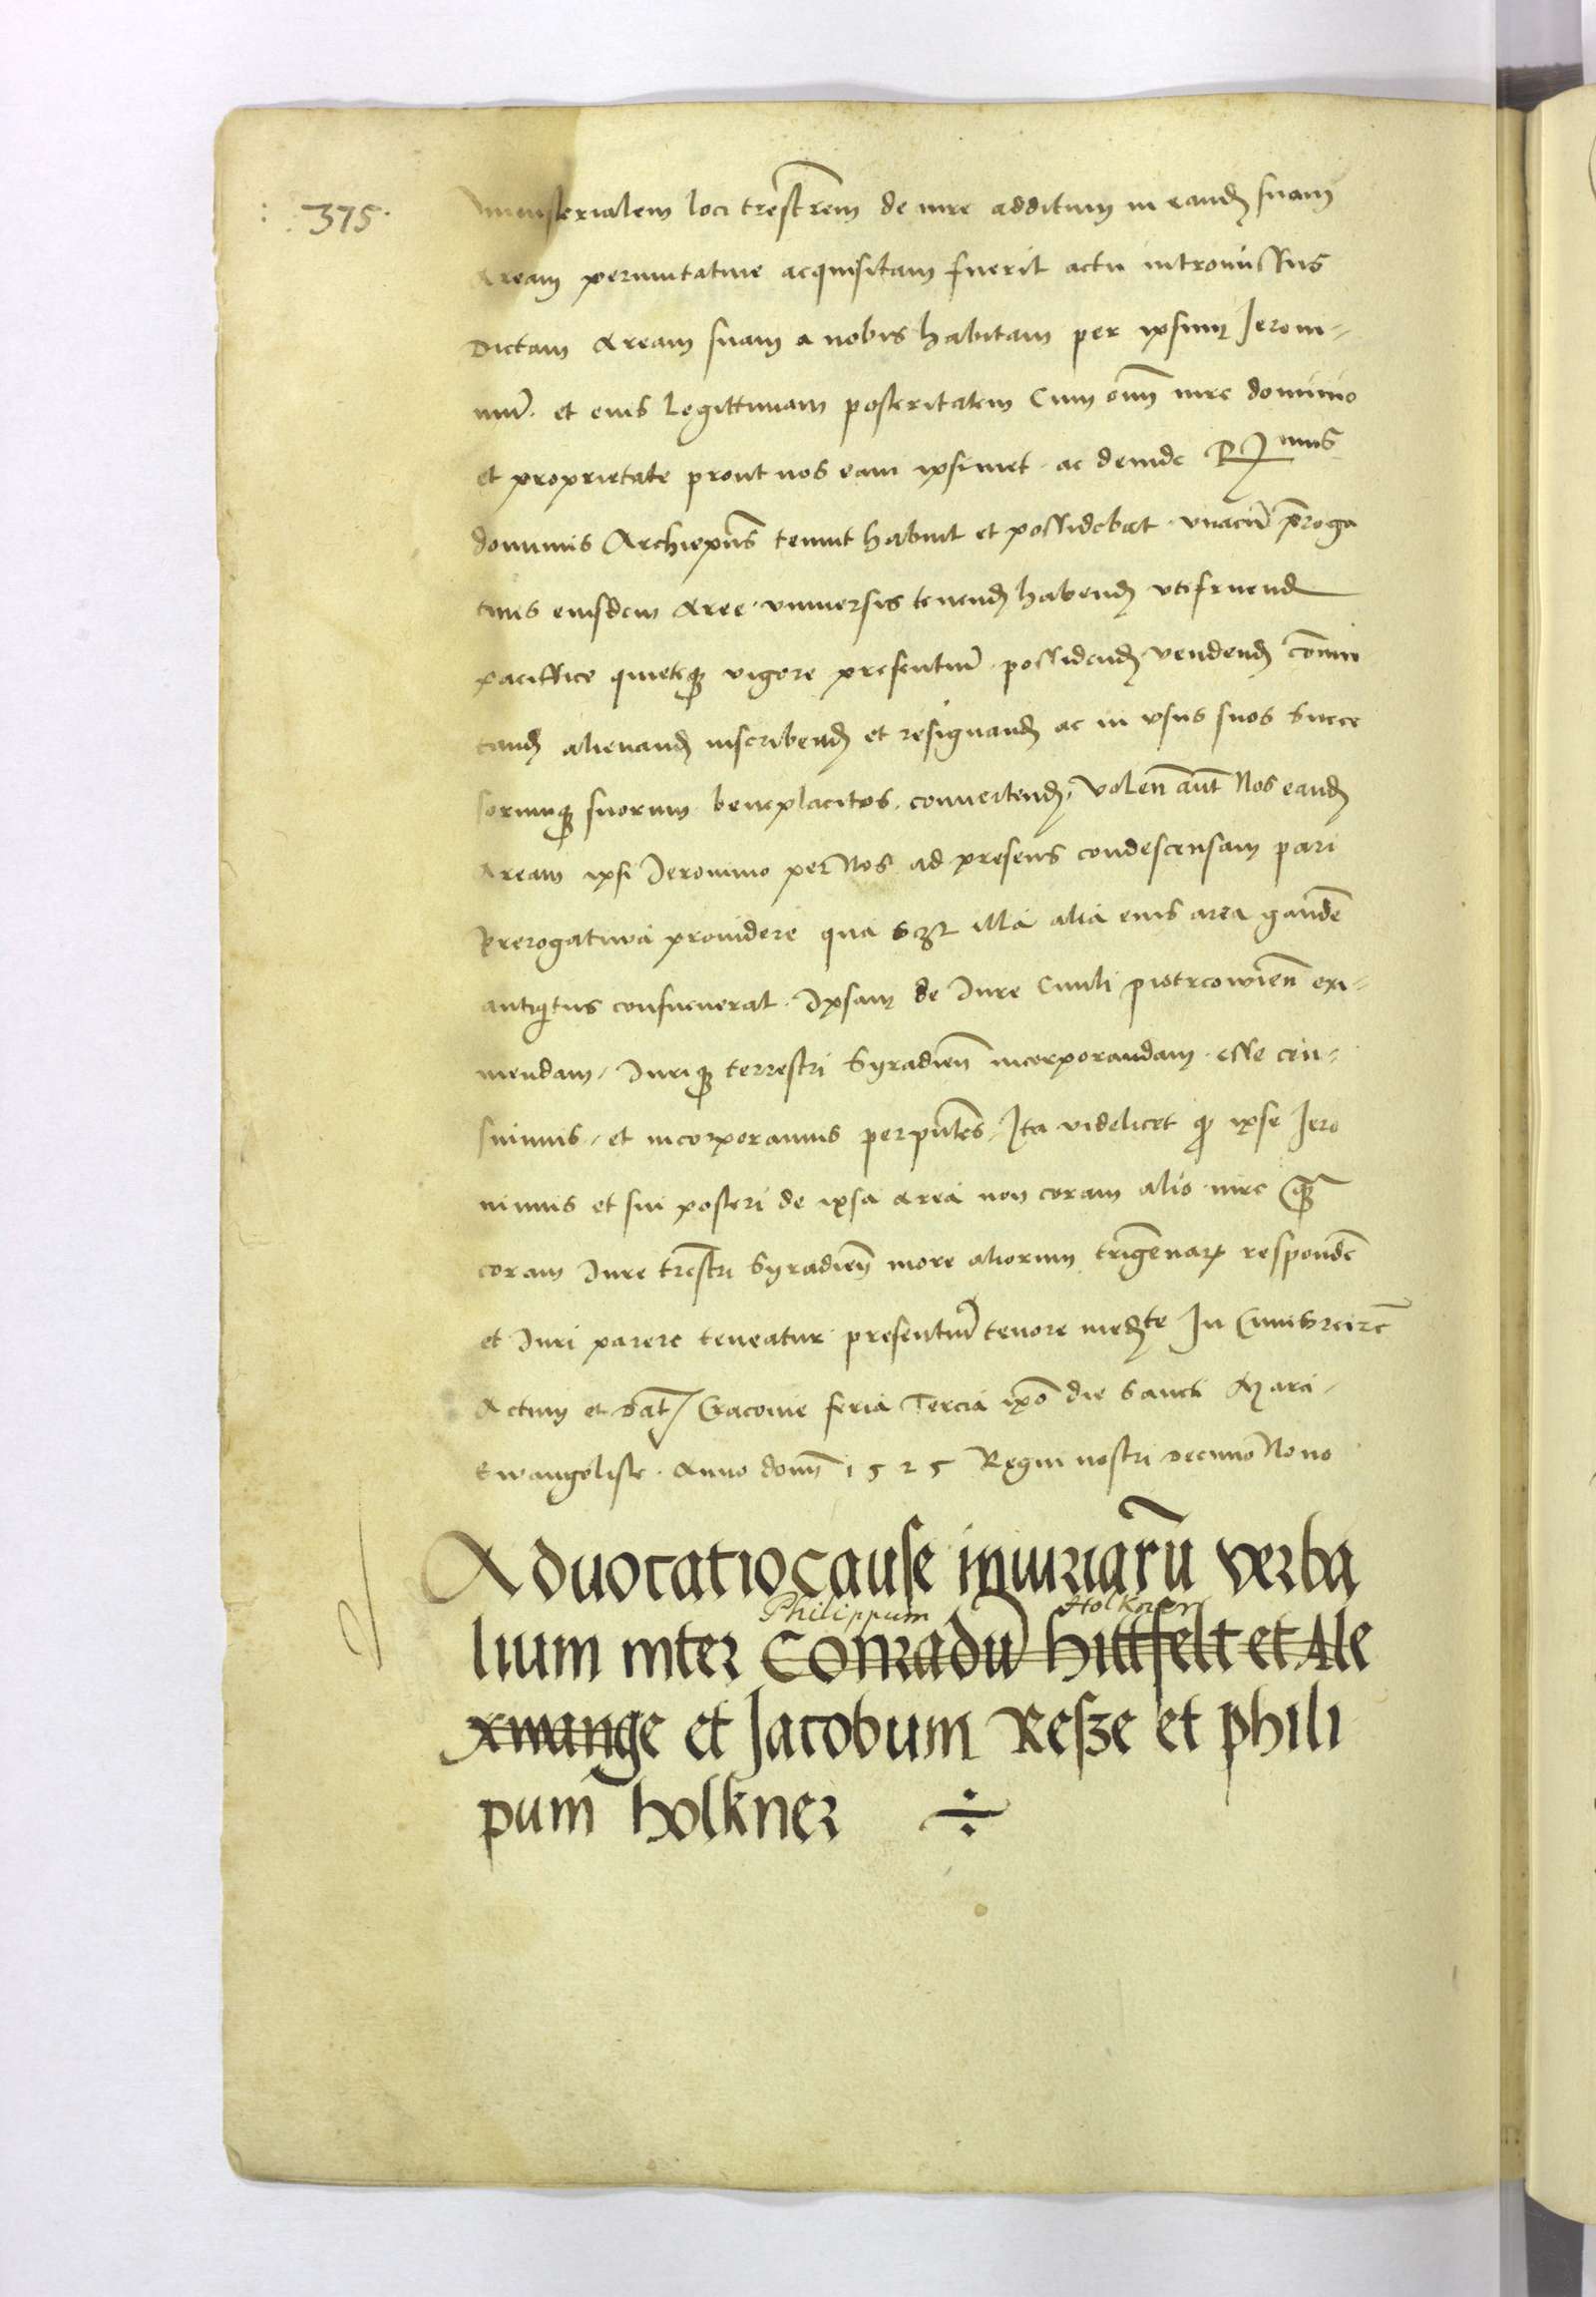 375.
ministerialem loci trestrem de iure additum in eand suam
Aream permutatiue acquisitam fuerit actu intromissus
Dictam Aream suam a nobis habitam per ipsum Jeroni-
mu. et eius Legittimam posteritatem Cum omni iure dominio
et proprietate prout nos eam ipsimet. ac deinde R mus
dominus Archiepus tenuit habuit et possidebat. vnacu preroga
tiuis eiusdem Aree. vniuersis tenend habend vtifruend
paciffice quieteq vigore presentiu. possidend. vendend comu
tand alienand inscribend et resignand ac in vsus suos Succes
sorumq suorum beneplacitos. conuertend. Volen aut Nos eand
Aream ipsi Jeronimo per Nos ad presens condescensam pari
Prerogatiua prouidere qua scz illa alia eius area gaude
antiqitus consueuerat. Ipsam de Iure Ciuili piotrcowien exi-
mendam, Iuriq terrestri Syradien incorporandam. esse cen-
suimus, et incorporamus per pntes, Ita videlicet q ipse Jero
nimus et sui posteri de ipsa area non coram alio iure q
coram Iure trestri Syradien more aliorum trigenar responde
et Iuri parere teneatur presentiu tenore medte In Cuius rei
Actum et dat Cracouie feria Tercia ipo die Sancti Marci
Ewangeliste. Anno domi 1525 Regni nostri decimo Nono
Aduocatio cause iniuriaru verba
Philippum Holkner
lium inter Conradu hittfelt et Ale
xwange et Jacobum Resze et phili
pum holkner ÷